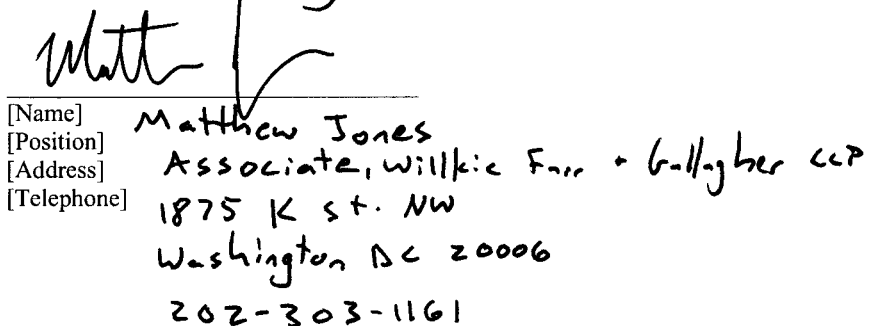 [Name] Matthew Jones
[Position] Associate, Willkie Farr + Gallagher LLP
[Address] 1875 K St. NW
[Telephone] Washington DC 20006
202-303-1161